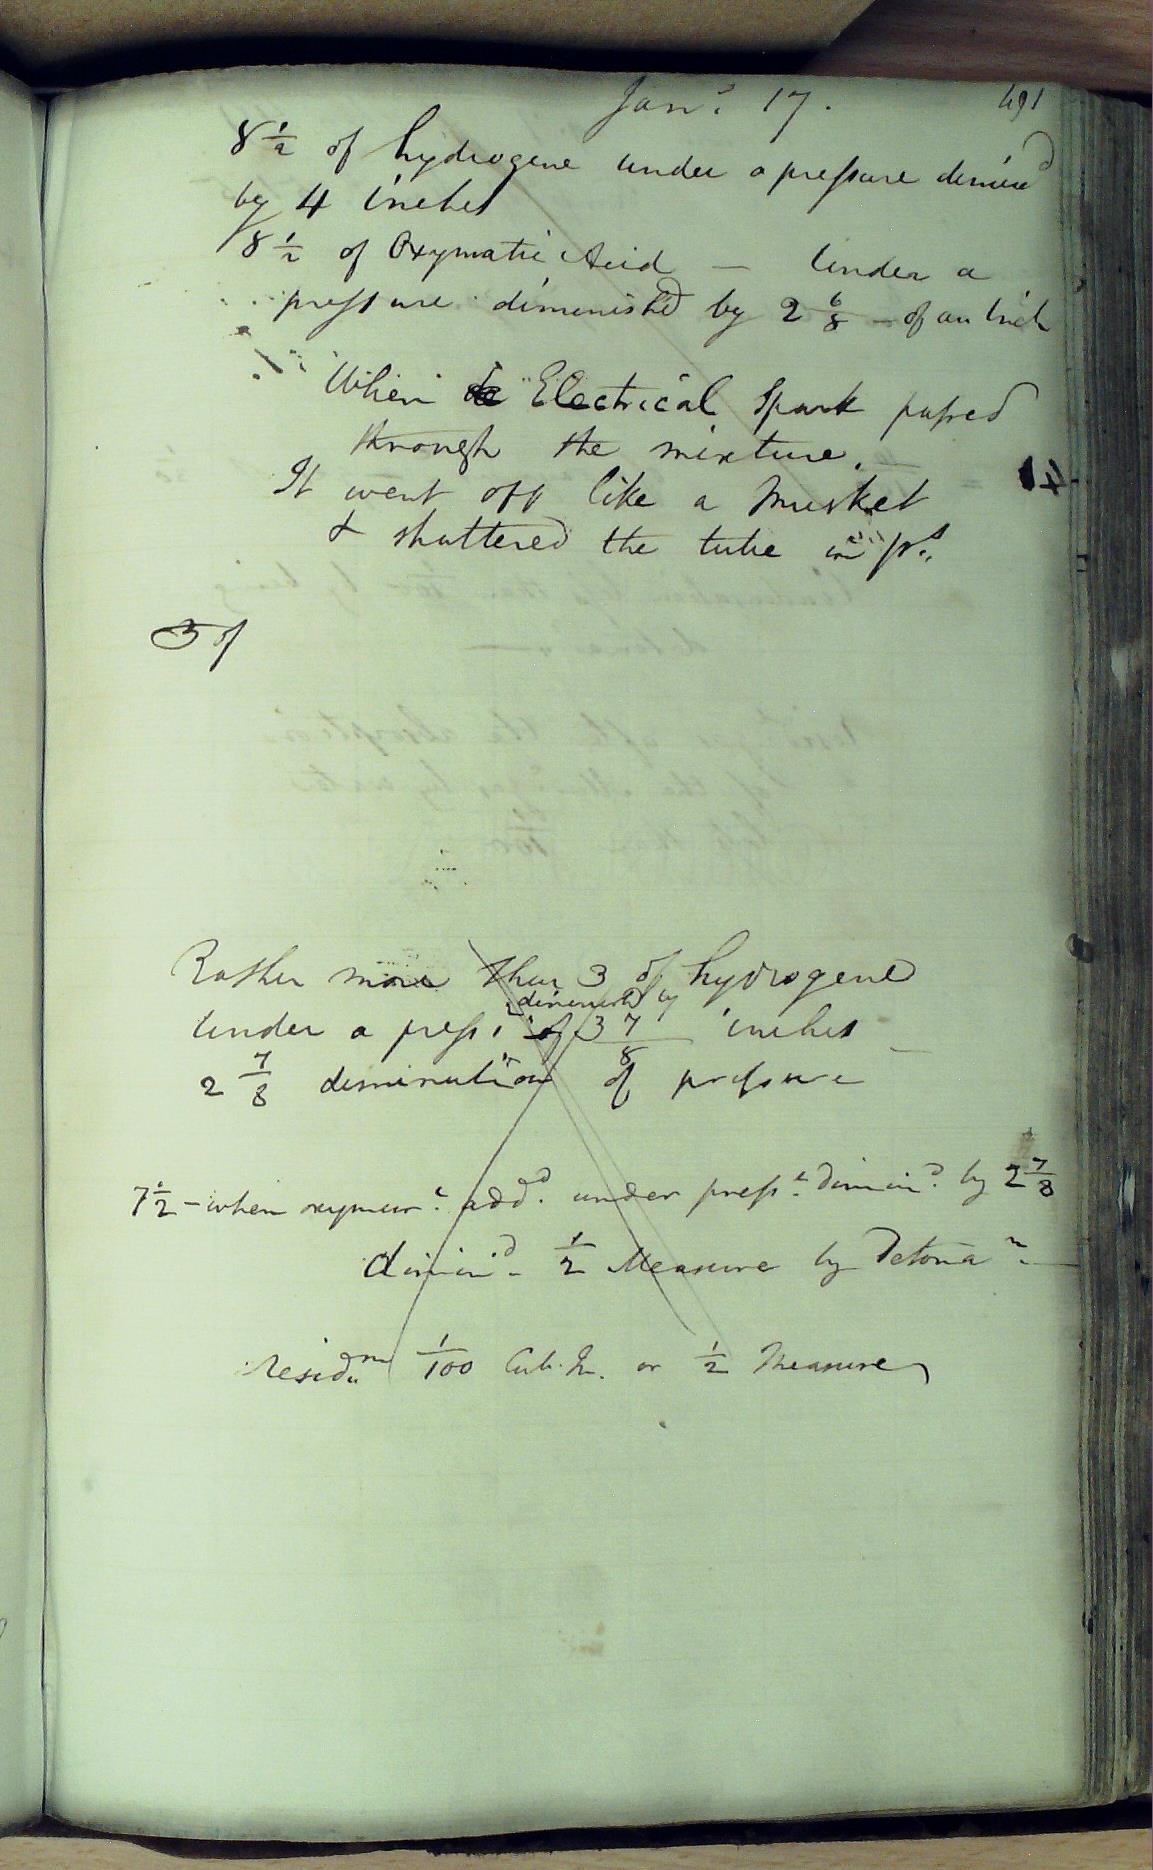 Janʸ. 17. 191
8 1/2 of hydrogene under a pressure diminᵈ
by 4 inches
8 1/2 of Oxymatic Acid — Under a
pressure diminishd by 2 6/8 - of an Inch
When Electrical Spark passed
through the mixture.
It went off like a Musket
& shattered the tube in ps.
3 of
Rather more than 3 of hydrogene
diminishd by
Under a press. of 3 7/8 inches —
2 7/8 diminution of pressure
7 1/2 - when oxymurᶜ. addᵈ. under pressᵉ. diminᵈ. by 2 7/8
diminᵈ - 1/2 Measure by Detonaⁿ. —
residᵐ 1/100 Cub. In. or 1/2 Measure